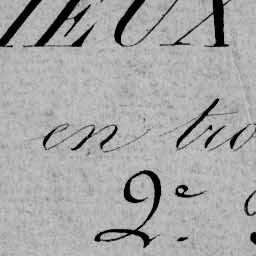 IEUX
en tro
2e.